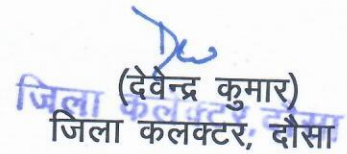 (देवेन्द्र कुमार)
जिला कलक्टर, दौसा
जिला कलक्टर, दौसा